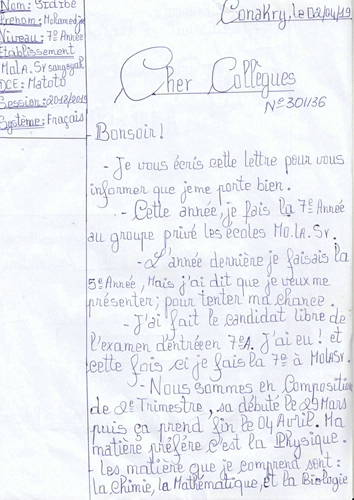 Nom: Sidibé
Prenom: Mohamed
Niveau: 7e Année
Etablissement
MoLA. Sy sangoyah
DCE: Matoto
Session: 2018/2019
Système: Français
Conakry, le 02/04/19
Cher Collègues
N° 301136
- Bonsoir!
- Je vous écris cette lettre pour vous
informer que je me porte bien.
- Cette année, je fais la 7e Année
au groupe privé les écoles Mo.LA. Sy.
- L'année dernière je faisais la
5e Année, Mais j'ai dit que je veux me
présenter; pour tenter ma chance.
- J'ai fait le candidat libre de
l'examen d'entrée en 7e A. J'ai eu! et
cette fois ci je fais la 7e à MoLASy.
- Nous sommes en Compositio
de 2e Trimestre, sa débuté le 29 Mars
puis ça prend fin le 04 Avril. Ma
matière préféré c'est la Physique.
- les matière que je comprend sont:
la chimie, la Mathématique, et la Biologie